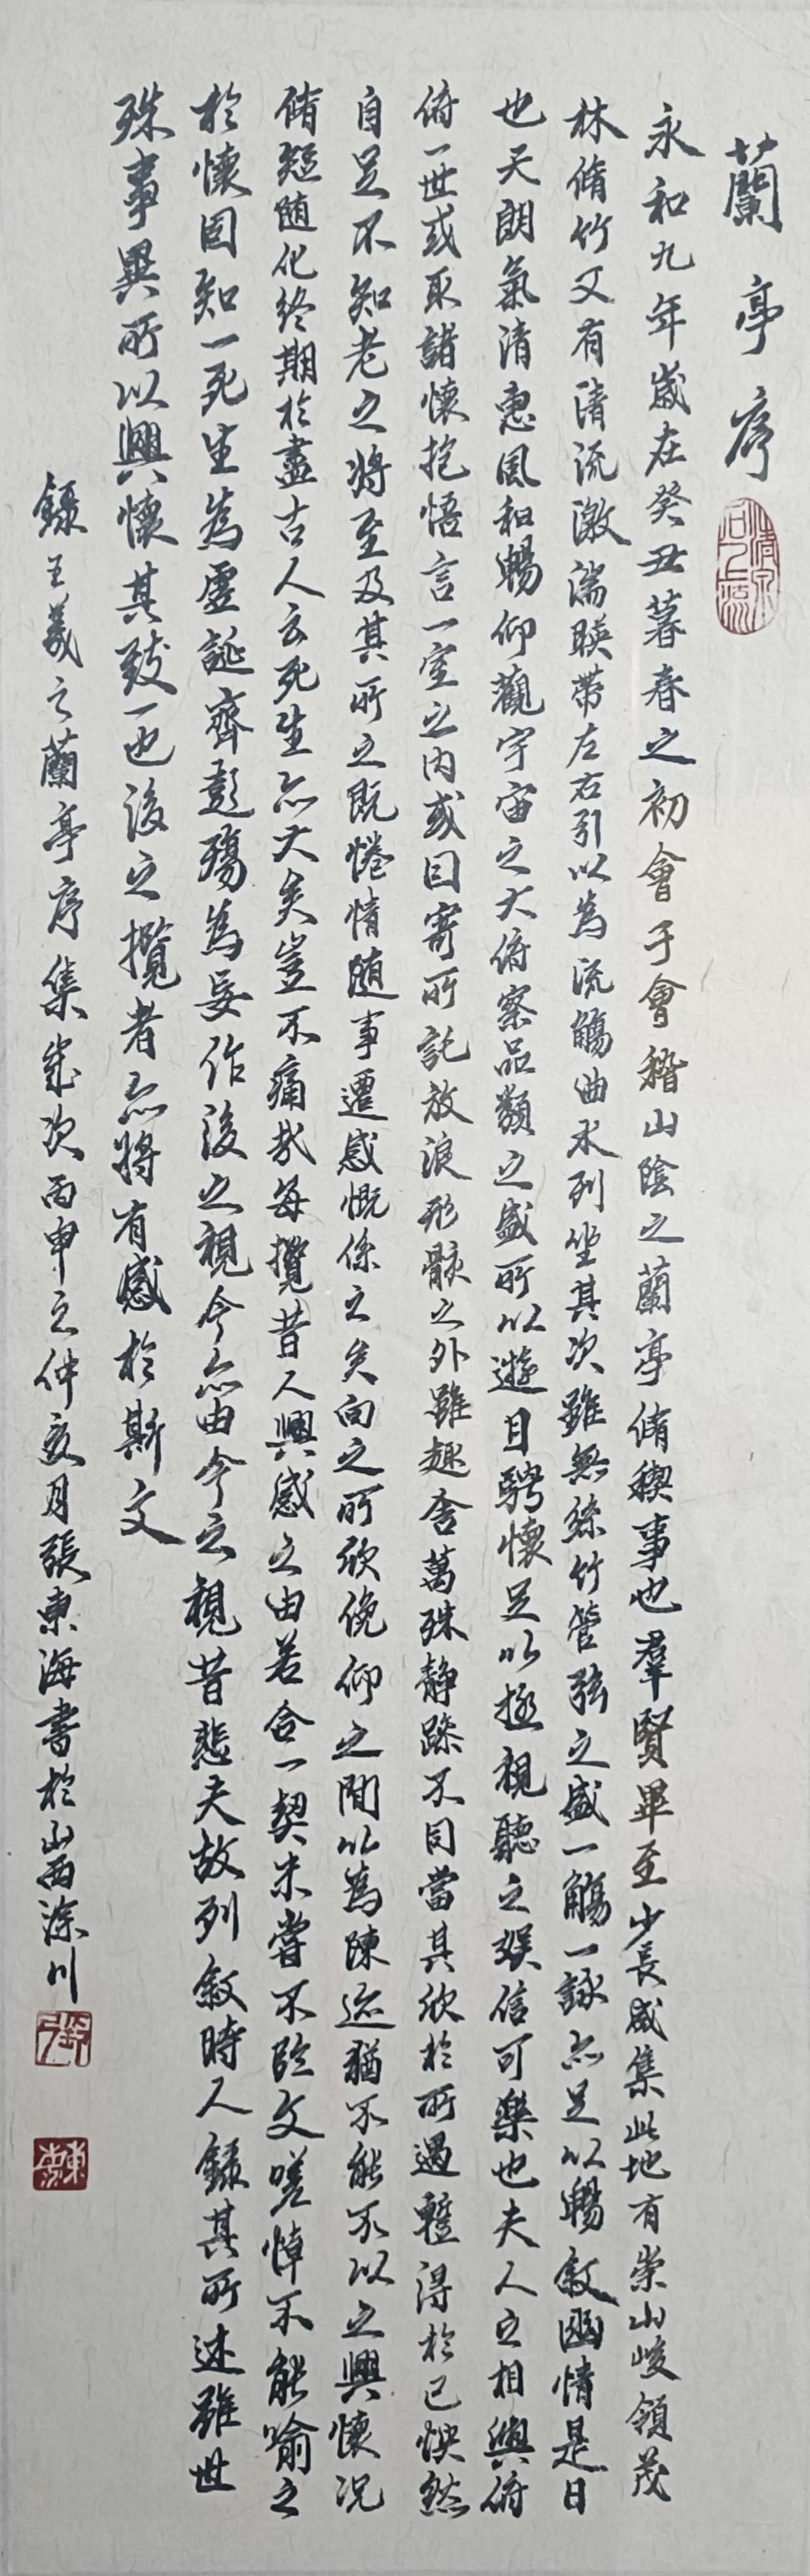 蘭亭序
永和九年歲在癸丑暮春之初會于會稽山陰之蘭亭脩稧事也羣賢畢至少長咸集此地有崇山峻領茂
林脩竹又有清流激湍暎帶左右引以為流觴曲水列坐其次雖無絲竹管弦之盛一觴一詠亦足以暢敘幽情是日
也天朗氣清惠風和暢仰觀宇宙之大俯察品類之盛所以遊目騁懷足以極視聽之娛信可樂也夫人之相與俯
俯一世或取諸懷抱悟言一室之內或因寄所託放浪形骸之外雖趣舍萬殊靜躁不同當其欣於所遇暫得於己怏然
自足不知老之將至及其所之既惓情隨事遷感慨係之矣向之所欣俛仰之間以為陳迹猶不能不以之興懷況
脩短隨化終期於盡古人云死生亦大矣豈不痛哉每攬昔人興感之由若合一契未嘗不臨文嗟悼不能喻之
於懷固知一死生為虛誕齊彭殤為妄作後之視今亦由今之視昔悲夫故列敘時人錄其所述雖世
殊事異所以興懷其致一也後之攬者亦將有感於斯文
錄王羲之蘭亭序集歲次丙申之仲夏月張東海書於山西涂川